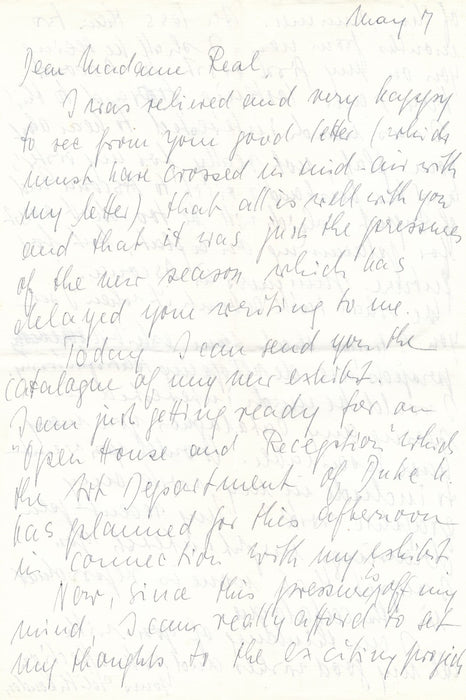 May 7
Dear Madame Real
I was relieved and very happy
to see from your good letter (which
must have crossed in mid-air with
my letter) that all is well with you
and that it was just the pressures
of the new season which has
delayed your writing to me.
Today I can send you the
catalogue of my new exhibit.
I am just getting ready for an
"Open House and Reception" which
the Art Department of Duke U.
has planned for this afternoon
in connection with my exhibit
Now, since this pressure is off my
mind, I can really afford to set
my thoughts to the exciting projects